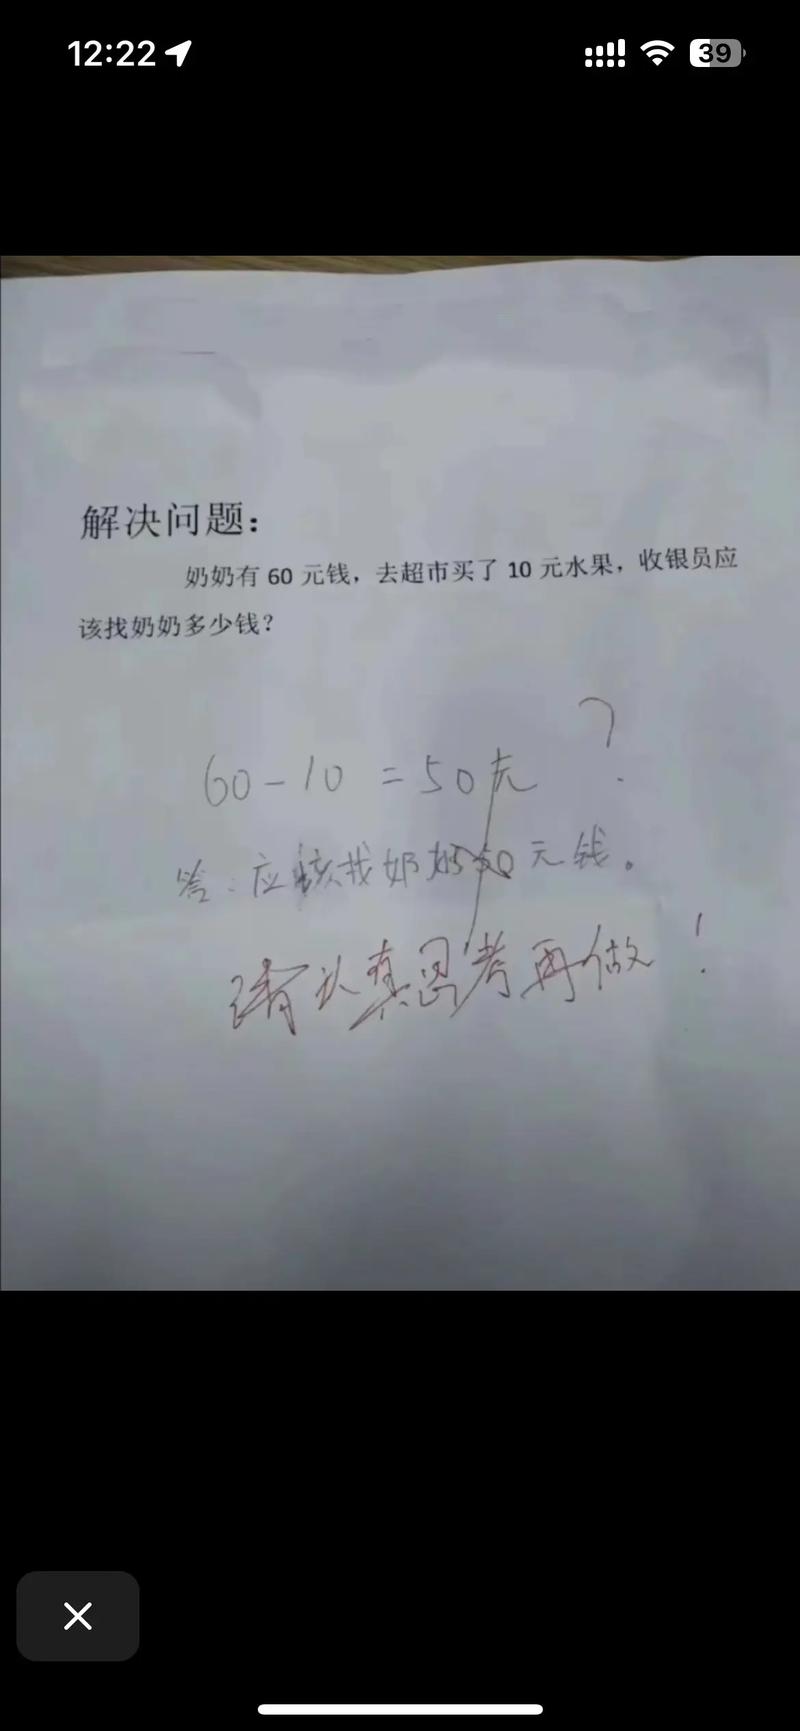 12:22
39
解决问题：
奶奶有 60 元钱，去超市买了 10 元水果，收银员应
该找奶奶多少钱？
?
60-10 =50元
答：应该找奶奶50元钱。
请认真思考再做！